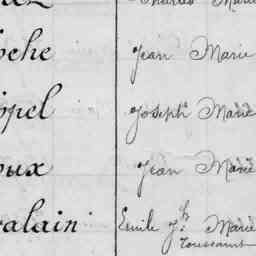 Charles Marie
oche Jean Marie
ppel Joseph Marie
oux Jean Marie
alain Emile Jh Marie
Toussaint